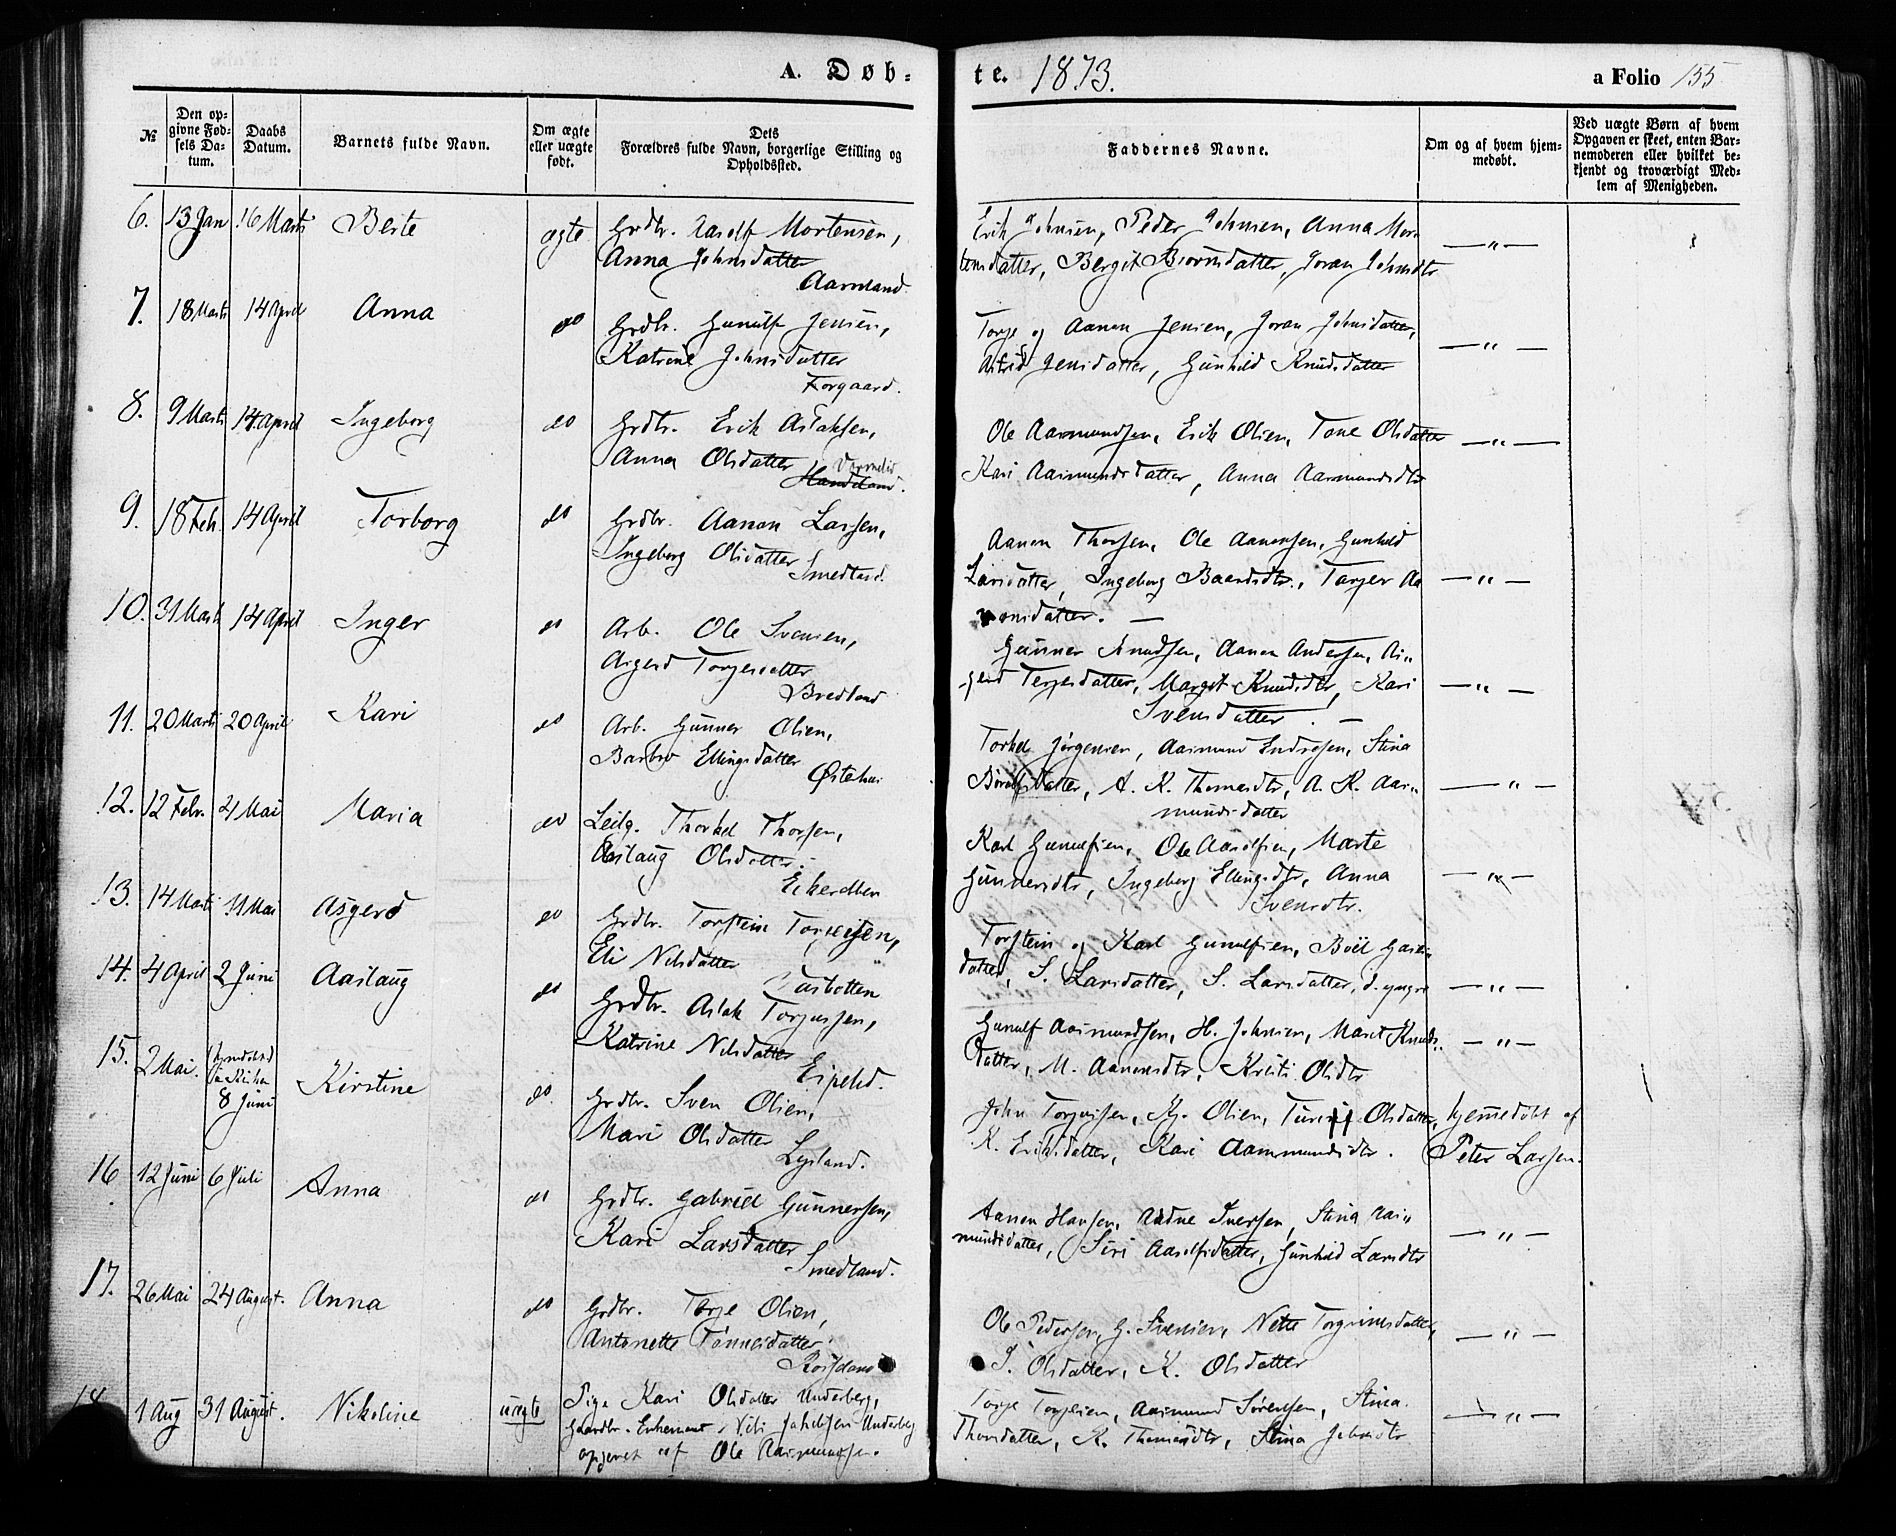 A. Døb-
te. 1873.
a Folio 155
№
Den op-
givne Fød-
sels Da-
tum.
Daabs
Datum.
Barnets fulde Navn.
Om ægte
eller uægte
født.
Dets
Forældres fulde Navn, borgerlige Stilling og
Opholdssted.
Faddernes Navne.
Om og af hvem hjem-
medøbt.
Ved uægte Børn af hvem
Opgaven er skeet, enten Bar-
nemoderen eller hvilket be-
kjendt og troværdigt Med-
lem af Menigheden.
6. 13 Jan 16 Marts Berte ægte Grdbr. Aasolf Mortensen,
Anna Johnsdatter
Aamland.
Erik Johnsen, Peder Johnsen, Anna Mor-
tensdatter, Bergit Biornsdatter, Joran Johnsdtr — " —
7. 18 Marts 14 April Anna do Grdbr. Gunulf Jensen,
Katrine Johnsdatter
Forgaard.
Torje og Aanon Jensen, Joran Johnsdatter,
Astrid Jensdatter, Gunhild Knudsdatter — " —
8. 9 Marts 14 April Ingeborg do Grdbr. Erik Aslaksen,
Anna Olsdatter
Ole Aasmundsen, Erik Olsen, Tone Olsdatter — " —
Kari Aasmundsdatter, Anna Aasmundsdtr
9. 18 Feb. 14 April Torborg do Grdbr. Aanon Larsen,
Ingeborg Olsdatter
Smedland.
Aanon Thorsen, Ole Aanonsen, Gunhild
Larsdatter, Ingeborg Baardsdtr., Torjer Aa — " —
nonsdatter. —
10. 31 Marts 14 April Inger do Arb. Ole Svensen,
Asgerd Torjesdatter
Bredland
Gunner Knudsen, Aanon Andersen, As-
gerd Terjesdatter, Margit Knudsdtr, Kari — " —
Svensdatter. —
11. 20 Marts 20 April Kari do Arb. Gunner Olsen,
Barbro Ellingsdatter
Østehus
Torkel Jørgensen, Aasmund Endresen, Stina
datter, A. K. Thomasdtr, A. K. Aas- — " —
mundsdatter
12. 12 Febr. 4 Mai Maria do Leilg. Thorkel Thorsen,
Aslaug Olsdatter.
Karl Gunulfsen, Ole Aasolfsen, Marte
Gunnersdtr, Ingeborg Ellingsdtr, Anna — " —
Svensdtr.
13. 14 Marts 11 Mai Asgerd do Grdbr. Torstein Torjeisen,
Eli Nilsdatter
Tasbotten
Torstein og Karl Gunulfsen, Boel
datter, S. Larsdatter, S. Larsdatter, d. yngre — " —
14. 4 April 2 Juni Aaslaug do Grdbr. Aslak Torjussen,
Katrine Nilsdatter
Gunulf Aasmundsen, H. Johnsen, Maret Knuds-
datter, M. Aanonsdtr, Kristi Olsdtr — " —
15. 2 Mai
8 Juni Kirstine do. Grdbr. Sven Olsen,
Mari Olsdatter
Lysland.
John Torjussen, Kj. Olsen, Turi Olsdatter, hjemedøbt af
K. Eriksdatter, Kari Aasmundsdtr. Peter Larsen.
16 12 Juni 6 Juli Anna do Grdbr. Gabriel Gunnersen,
Kari Larsdatter
Smedland.
Aanon Hansen, Aadne Iversen, Stina Aas-
mundsdatter, Siri Aasolfsdatter, Gunhild Larsdtr — " —
17. 26 Mai 24 August. Anna do Grdbr. Torje Olsen,
Antonette Tønnesdatter
Rossland
Ole Pedersen, G. Svensen, Nette Torgrimsdatter,
I. Olsdatter, K. Olsdatter — " —
18 1 Aug 31 August. Nikoline uægte Pige Kari Olsdatter Underberg,
Gaardbr. Enkemand Nils Jakobsen Underberg
opgivet af Ole Aasmundsen.
Torje Torjesen, Aasmund Sørensen, Stina
Thorsdatter, K. Thomasdtr, Stina Johnsdtr — " —